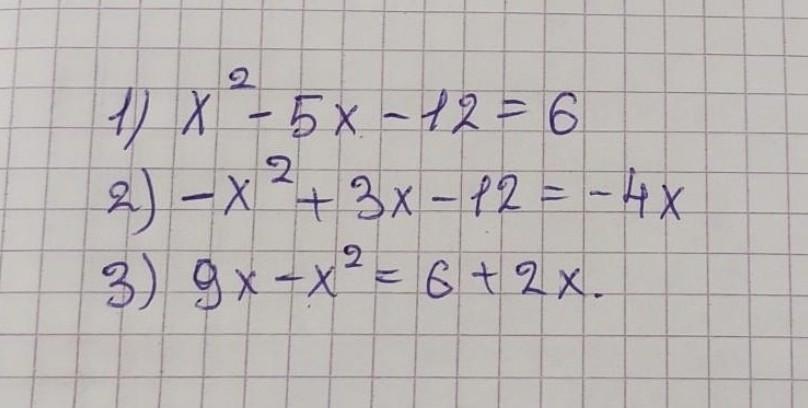 1) x² - 5x - 12 = 6
2) -x² + 3x - 12 = -4x
3) 9x - x² = 6 + 2x.